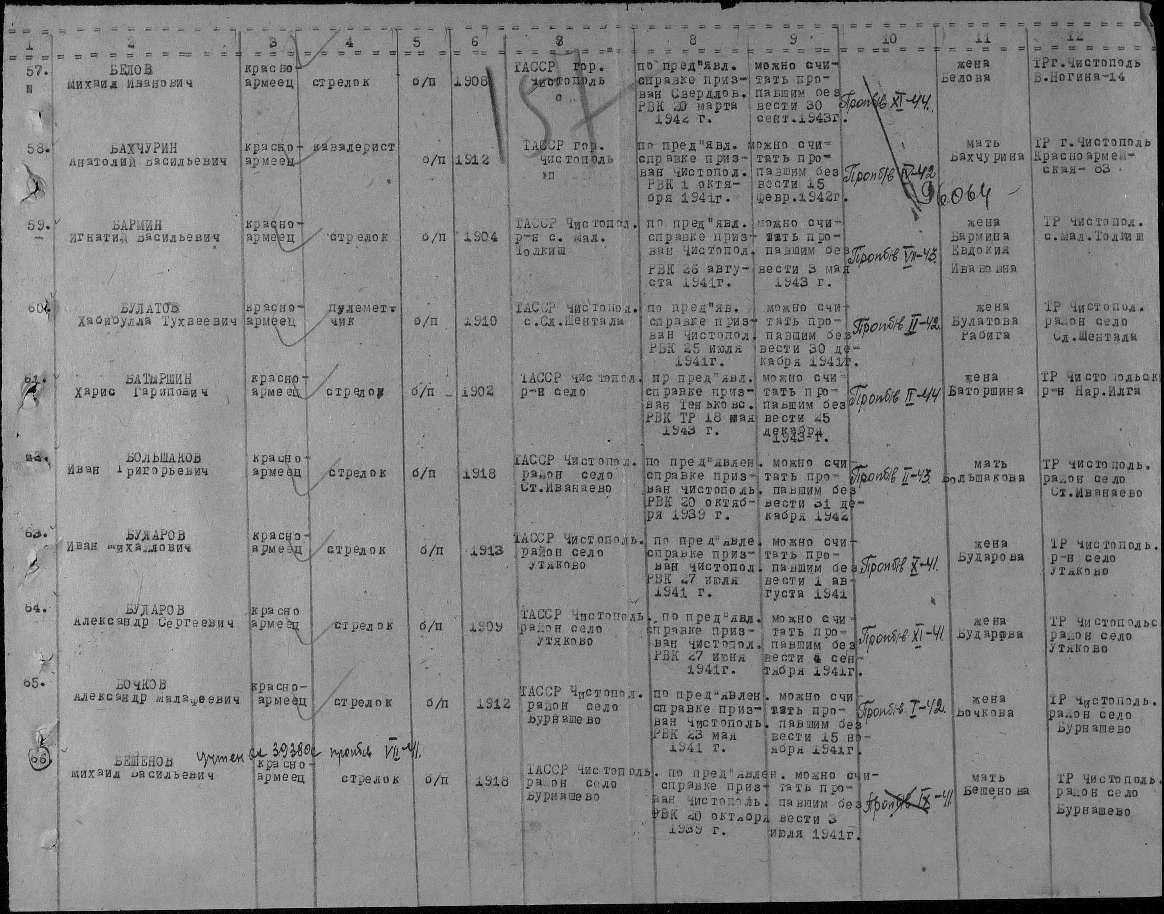 1 2 3 4 5 6 8 8 9 10 11 12
57. БЕЛОВ Михаил Иванович
красно-
армеец
стрелок б/п 1908
ТАССР гор.
Чистополь
по пред"явл.
справке приз-
ван Свердлов.
РВК 20 марта
1942 г.
можно счи-
тать про-
павшим без
вести 30
сент.1943г.
Проп б/в XI-44.
жена
Белова
ТР г.Чистополь
В.Ногина-14
157
58. БАХЧУРИН
Анатолий Васильевич
красно-
армеец
кавалерист
б/п 1912
ТАССР гор.
Чистополь
по пред"явл.
справке приз-
ван Чистопол.
РВК 1 октя-
бря 1941г.
можно счи-
тать про-
павшим без
вести 15
февр.1942г.
Проп б/в IV-42
96064
мать
Бахчурина
ТР г.Чистополь
Красноармей-
ская- 83
59. БАРМИН
Игнатий Васильевич
красно-
армеец
стрелок б/п 1904
ТАССР Чистопол.
р-н с. Мал.
Толкиш
по пред"явл.
справке приз-
ван Чистопол.
РВК 26 авгу-
ста 1941г.
можно счи-
тать про-
павшим без
вести 3 мая
1943 г.
Проп б/в VII-43.
жена
Бармина
Евдокия
Ивановна
ТР Чистопол.
с.Мал.Толкиш
60. БУЛАТОВ
Хабибулла Тухвеевич
красно-
армеец
пулемет-
чик
б/п 1910
ТАССР Чистопол.
с.Сл.Шентала
по пред"яв.
справке приз-
ван Чистопол.
РВК 25 июля
1941г.
можно счи-
тать про-
павшим без
вести 30 де-
кабря 1941г.
Проп б/в II-42.
жена
Булатова
Рабига
ТР Чистопол.
район село
Сл.Шентала
61. БАТЫРШИН
Харис Гарипович
красно-
армеец
стрелок б/п 1902
ТАССР Чистопол.
р-н село
пр пред"явл.
справке приз-
ван Теньковс.
РВК ТР 18 мая
1943 г.
можно счи-
тать про-
павшим без
вести 25
декабря
1943 г.
Проп б/в II-44
жена
Баторшина
ТР Чистопольск
р-н Нар.Илга
62. БОЛЬШАКОВ
Иван Григорьевич
красно-
армеец
стрелок б/п 1918
ТАССР Чистопол.
район село
Ст.Иванаево
по пред"явлен.
справке приз-
ван Чистополь.
РВК 20 октяб-
ря 1939 г.
можно счи-
тать про-
павшим без
вести 31 де-
кабря 1942
Проп б/в II-43.
мать
Большакова
ТР Чистополь.
район село
Ст.Иванаево
63. БУДАРОВ
Иван Михайлович
красно-
армеец
стрелок б/п 1913
ТАССР Чистополь.
район село
Утяково
по пред"явле.
справке приз-
ван Чистопол.
РВК 27 июля
1941 г.
можно счи-
тать про-
павшим без
вести 1 ав-
густа 1941
Проп б/в X-41.
жена
Бударова
ТР Чистополь.
р-н село
Утяково
64. БУДАРОВ
Александр Сергеевич
красно
армеец
стрелок б/п 1909
ТАССР Чистополь.
район село
Утяково
по пред"явл.
справке приз-
ван Чистопол.
РВК 27 июня
1941г.
можно счи-
тать про-
павшим без
вести 4 сен-
тября 1941г.
Проп б/в XI-41
жена
Бударова
ТР Чистопольс
район село
Утяково
65. БОЧКОВ
Александр Малафеевич
красно-
армеец
стрелок б/п 1912
ТАССР Чистопол.
район село
Бурнашево
по пред"явлен.
справке приз-
ван Чистополь.
РВК 23 мая
1941 г.
можно счи-
тать про-
павшим без
вести 15 но-
ября 1941г.
Проп б/в I-42.
жена
Бочкова
ТР Чистополь.
район село
Бурнашево
66 БЕШЕНОВ
Михаил Васильевич
учтен проп б/в VII-41.
красно-
армеец
стрелок б/п 1918
ТАССР Чистополь.
район село
Бурнашево
по пред"явлен.
справке приз-
ван Чистополь.
РВК 20 октября
1939 г.
можно счи-
тать про-
павшим без
вести 3
июля 1941г.
Проп б/в IX-41
мать
Бешенова
ТР Чистополь.
район село
Бурнашево